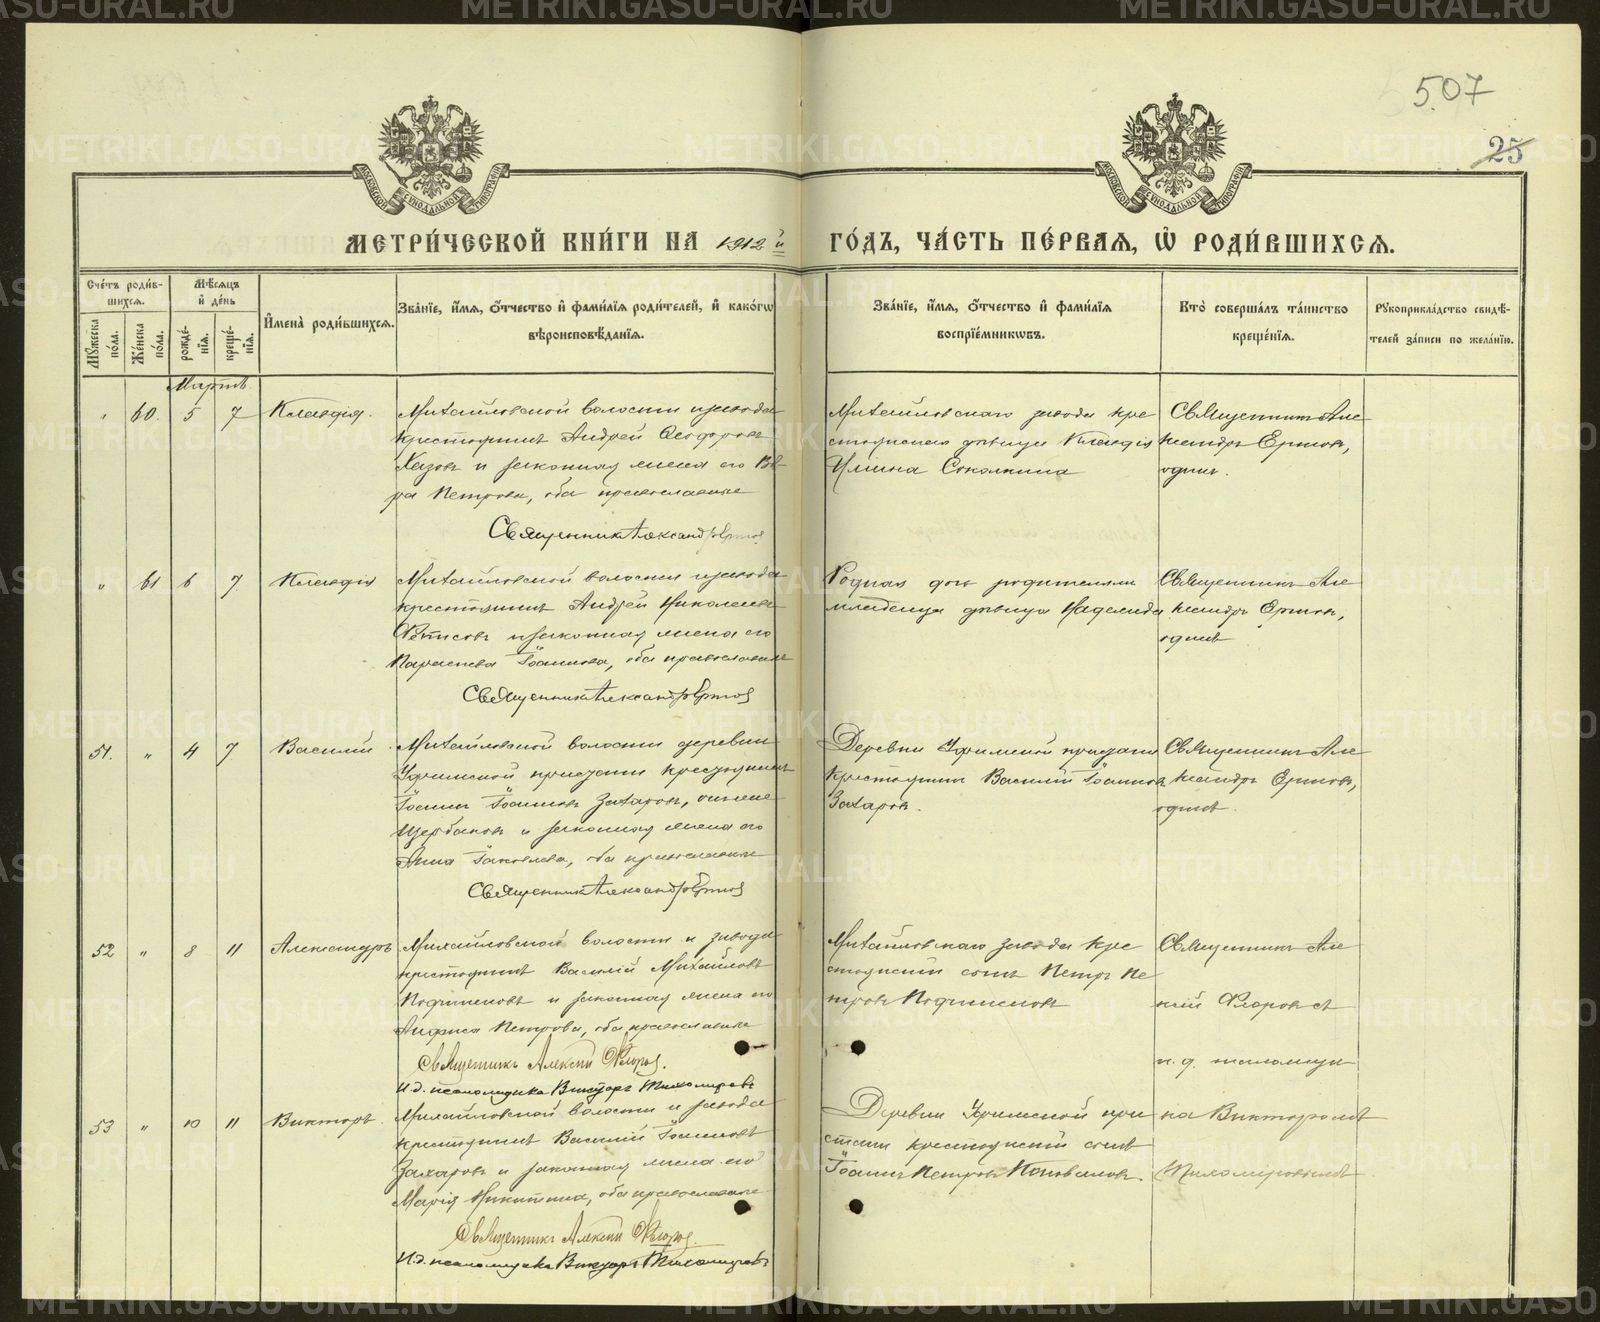 507
25
МЕТРИ́ЧЕСКОЙ КНИ́ГИ НА 1912 й
ГО́ДЪ, ЧА́СТЬ ПЕ́РВАЯ, Ѡ РОДИ́ВШИХСЯ.
Сче́тъ роди́в-
шихся.
Мꙋжеска по́ла.
Же́нска по́ла.
Мѣ́сяцъ и де́нь
рожде́-
нїя.
креще́-
нїя.
Имена̀ роди́вшихся.
Зва́нїе, и́мя, ѻ́тчество и фами́лїя роди́телей, и како́гѡ
вѣроисповѣ́данїя.
Зва́нїе, и́мя, ѻ́тчество и фами́лїя
воспрїе́мникѡвъ.
Кто̀ соверша́лъ та́инство
креще́нїя.
Рꙋкоприкла́дство свидѣ́-
телей за́писи по жела́нїю.
Мартъ
" 60. 5 7 Клавдія.
Михайловской волости и завода
крестьянинъ Андрей Ѳеодоровъ
Хазовъ и законная жена его Вѣ-
ра Петрова, оба православные
Священникъ Александръ Ершов
Михайловскаго завода кре
стьянская дѣвица Клавдія
Ильина Соколкина
Священникъ Але
ксандръ Ершовъ,
одинъ.
" 61 6 7 Клавдія
Михайловской волости и завода
крестьянинъ Андрей Николаевъ
Фетисовъ и законная жена его
Параскева Іоаннова, оба православные
Священникъ Александръ Ершов
Родная дочь родителями
младенца дѣвица Надежда
Священникъ Але
ксандръ Ершовъ,
одинъ
51. " 4 7 Василій
Михайловской волости деревни
Уфимской пристани крестьянинъ
Іоаннъ Іоанновъ Захаровъ, онъ же
Щербаковъ и законная жена его
Анна Іаковлева, оба православные
Священникъ Александръ Ершов
Деревни Уфимской пристани
крестьянинъ Василій Іоанновъ
Захаровъ.
Священникъ Але
ксандръ Ершовъ,
одинъ.
52 " 8 11 Александръ
Михайловской волости и завода
крестьянинъ Василій Михайловъ
и законная жена его
Анфиса Петрова, оба православные
Священникъ Алексій Флоров.
И.д. псаломщика Викторъ Тихомировъ
Михайловскаго завода кре
стьянскій сынъ Петръ Пе
тровъ
Священникъ Але
ксій Флоровъ съ
и. д. псаломщи
ка Викторомъ
Тихомировымъ
53 " 10 11 Викторъ
Михайловской волости и завода
крестьянинъ Василій Іоанновъ
Захаровъ и законная жена его
Марія Никитина, оба православные
Священникъ Алексій Флоров.
И.д. псаломщика Викторъ Тихомировъ
Деревни Уфимской при
стани крестьянскій сынъ
Іоаннъ Петровъ Коновалов.
METRIKI.GASO-URAL.RU